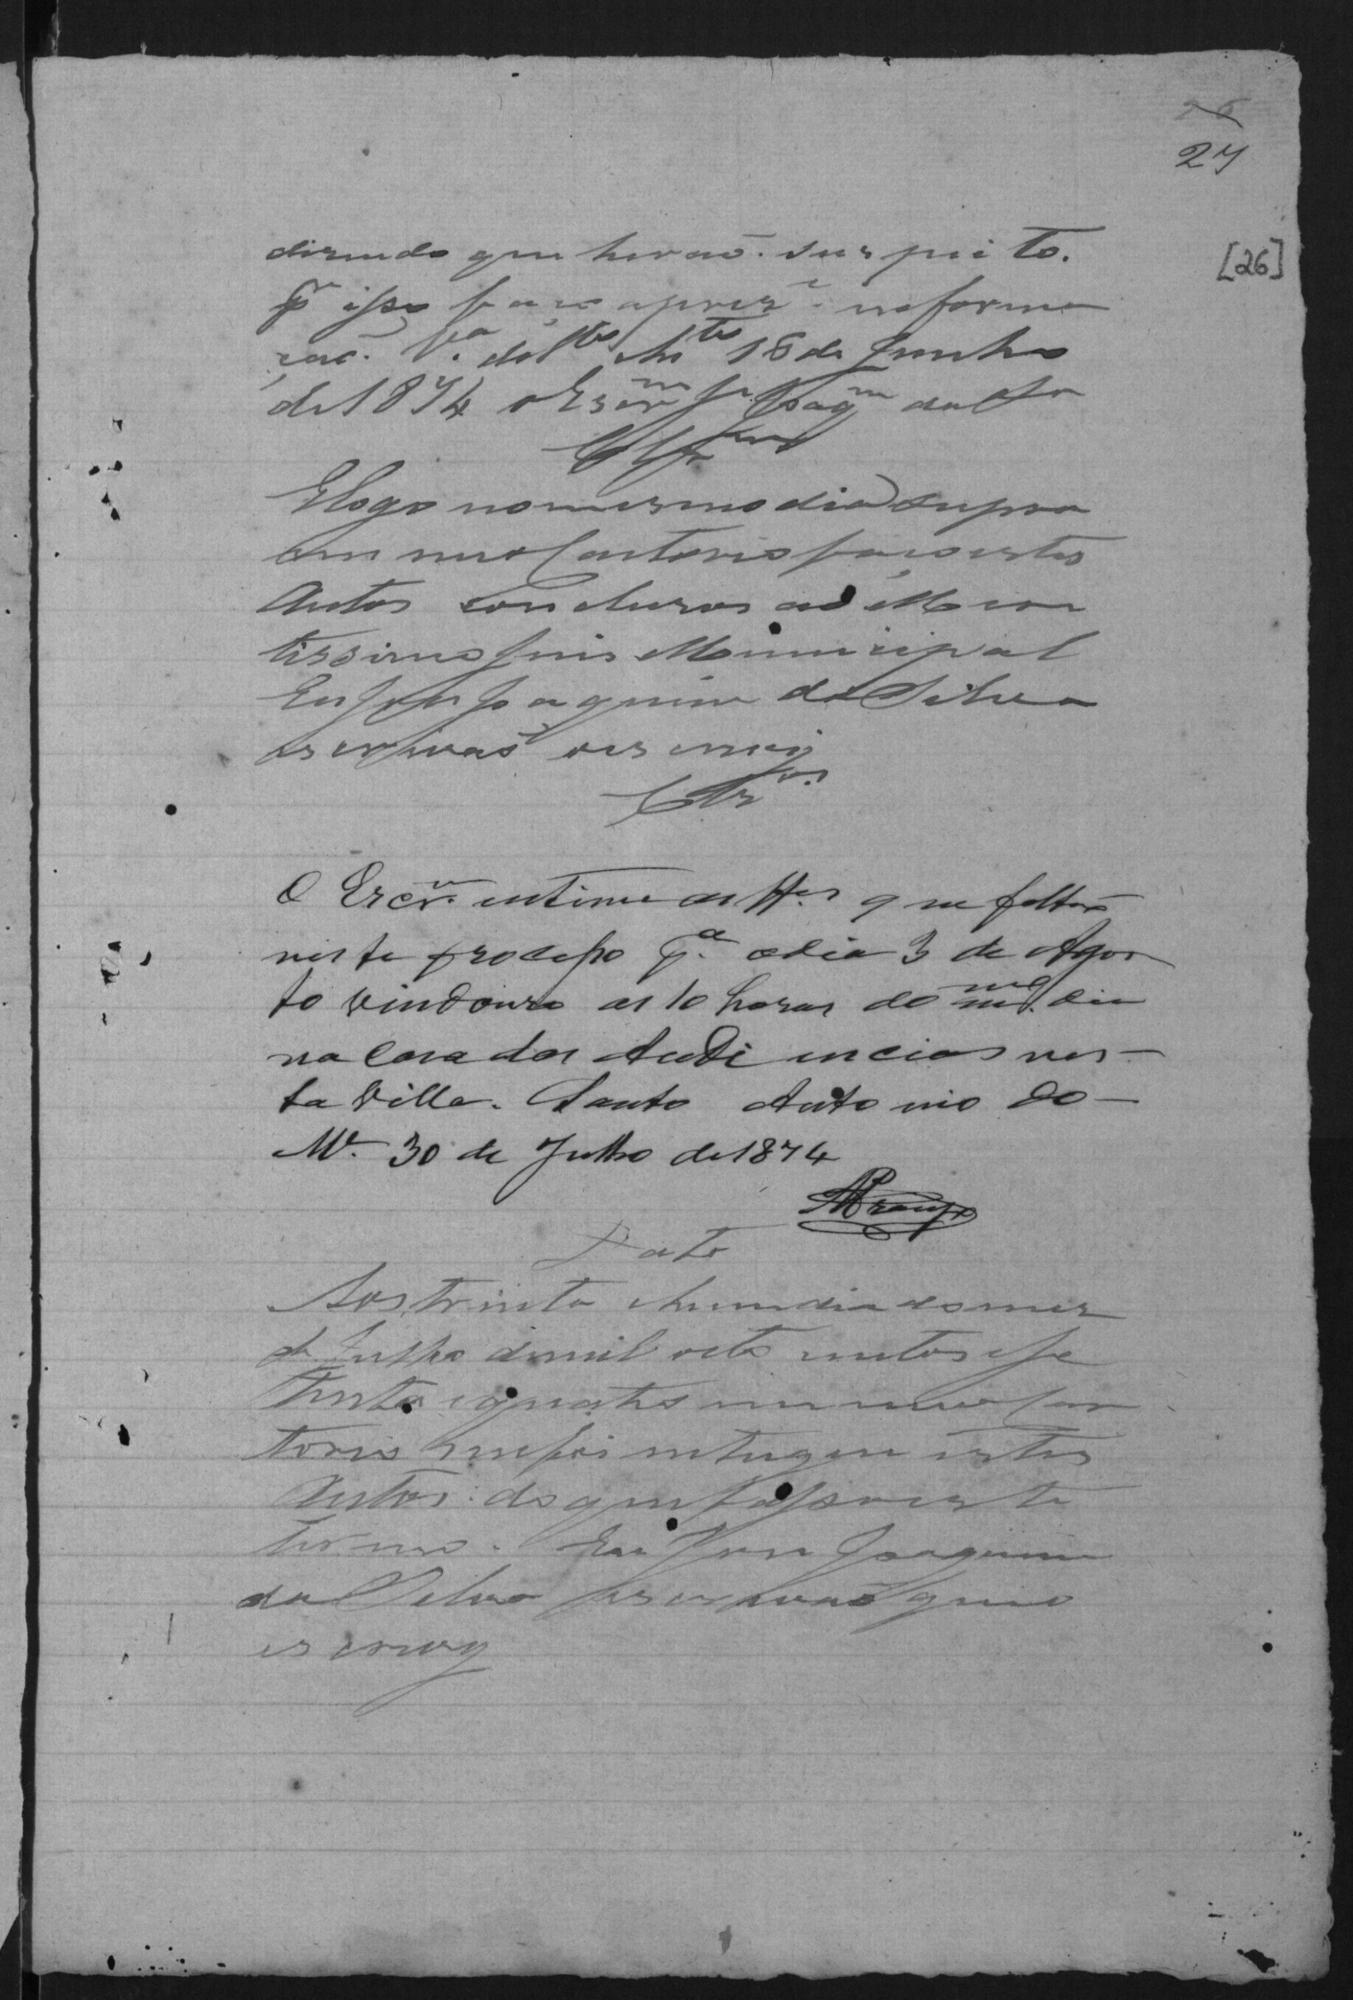 26
27
[26]
disendo que herao. suspeito.
pr isso faco apres.e informa
cao. Va. de Sto Anto 16 de Junho
de 1874 o Escrm Je Joaqm da Sa
Clsos
E logo no mesmo dia supra
em meu Cartorio faco estes
Autos Concluzos ao Meri
tissimo Juis Municipal
Eu Jose Joaquim da Silva
escrivaõ o escrivy
Clsos.
O Escrm. intime as tt.as que faltaõ
neste processo pa. o dia 3 de Agos
to vindouro as 10 horas do mmo. dia
na Casa das Audiencias nes-
ta Villa. Santo Antonio do-
Mr. 30 de Julho de 1874
Araujo
Data
Aos trinta e hum dia do mes
de Julho de mil oito centos e se
tenta e quatro em meu Car
torio me foi entregue estes
Autos: do que fasso este
termo. Eu Jose Joaquim
da Silva escrivaõ que o
escrivy